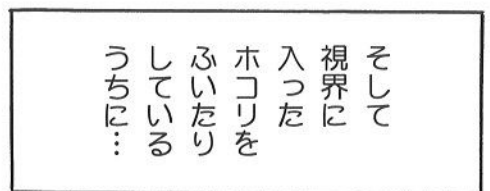 そして
視界に
入った
ホコリを
ふいたり
している
うちに…